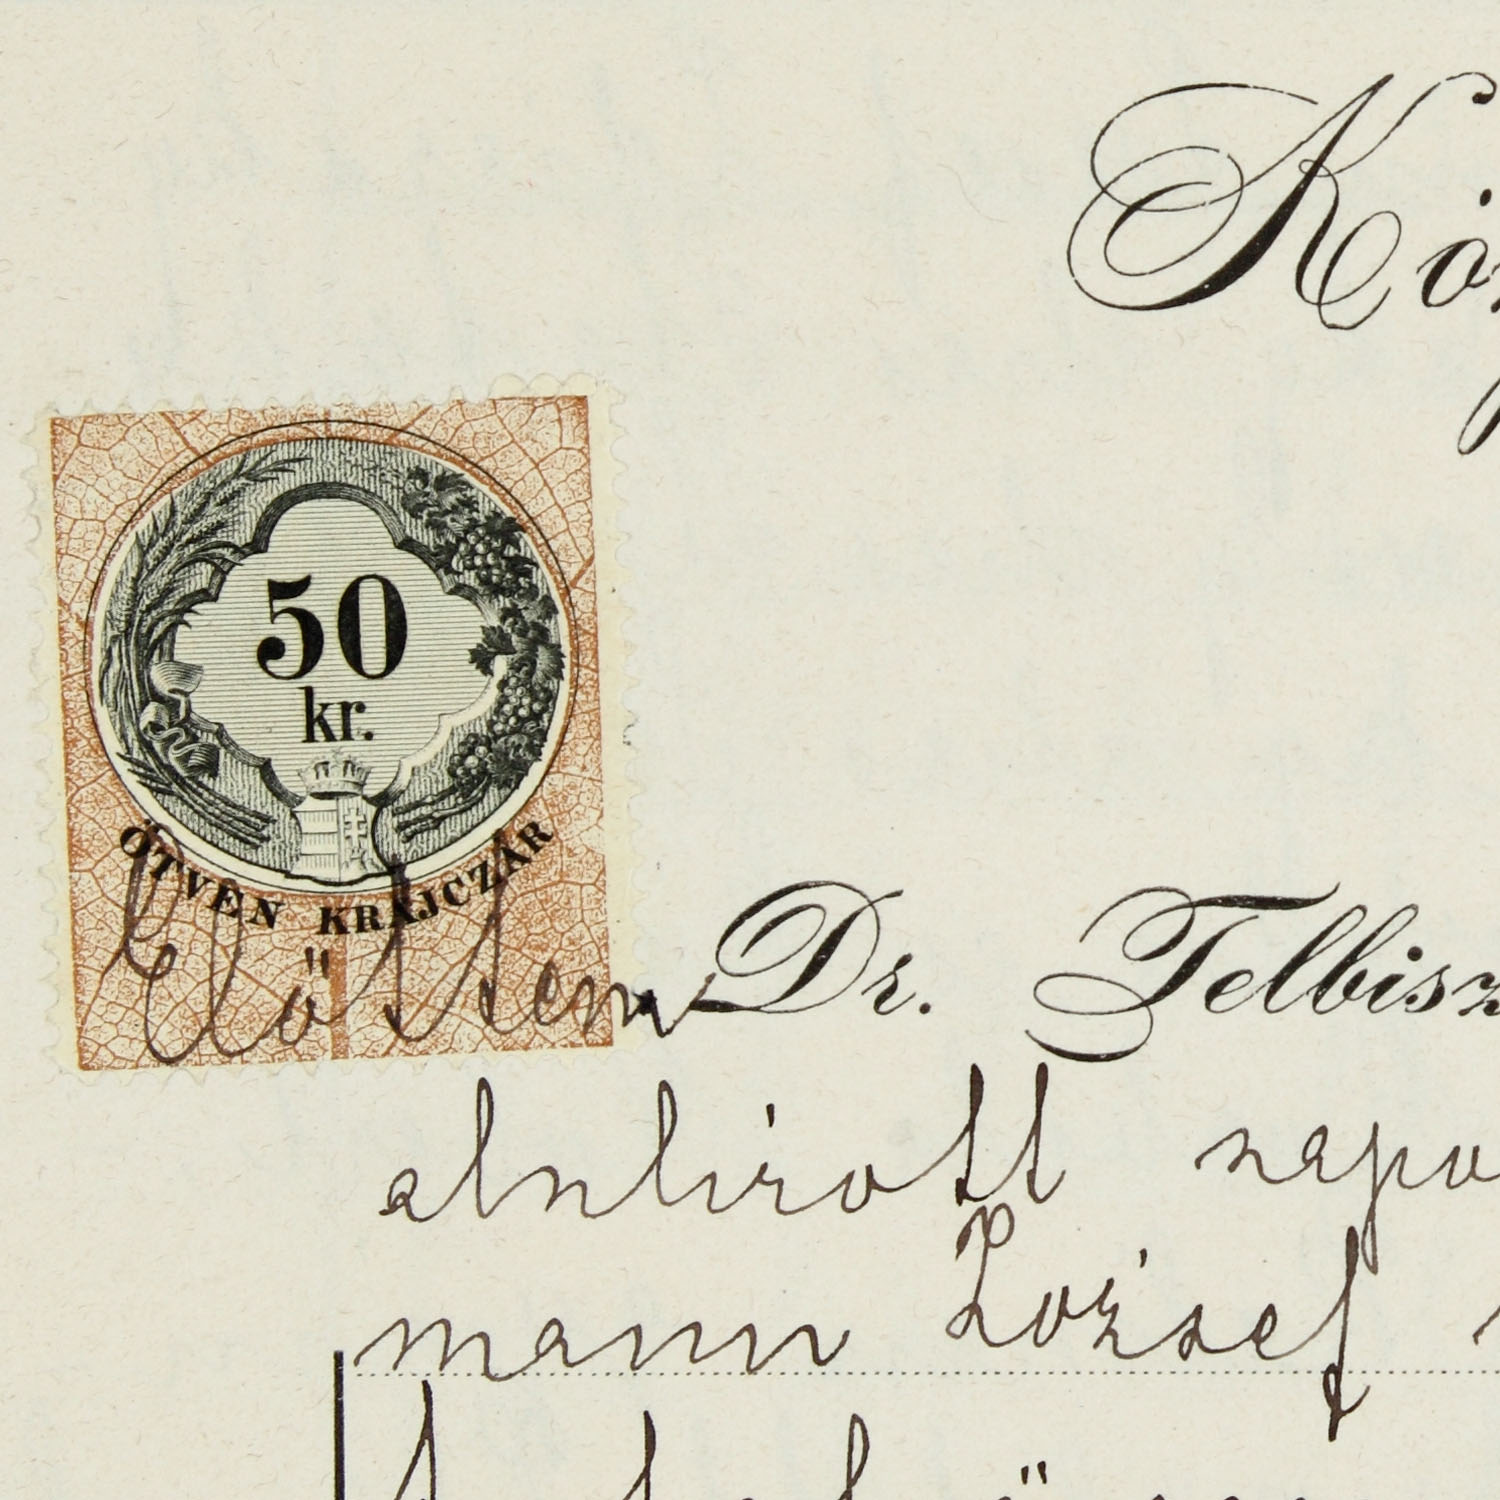 50
kr.
ÖTVEN KRAJCZÁR
Előttem Dr. Telbisz
alulirott
mann József